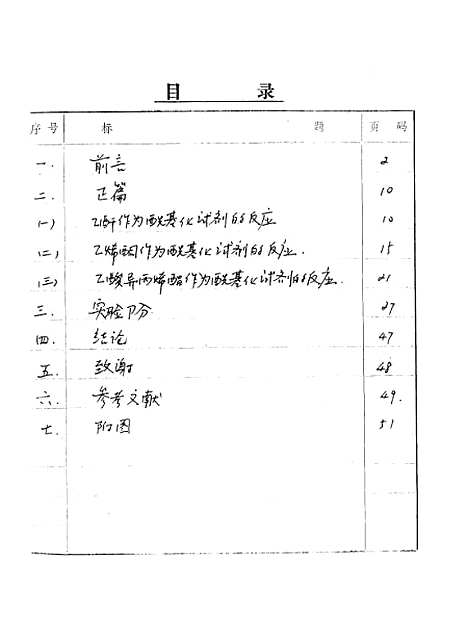 目 录
序号 标 题 页 码
一. 前言 2
二. 正篇 10
(一) 乙酐作为酰基化试剂的反应 10
(二) 乙烯酮作为酰基化试剂的反应. 15
(三) 乙酸异丙烯酯作为酰基化试剂的反应. 21
三. 实验部分 27
四. 结论 47
五. 致谢 48
六. 参考文献 49.
七. 附图 51